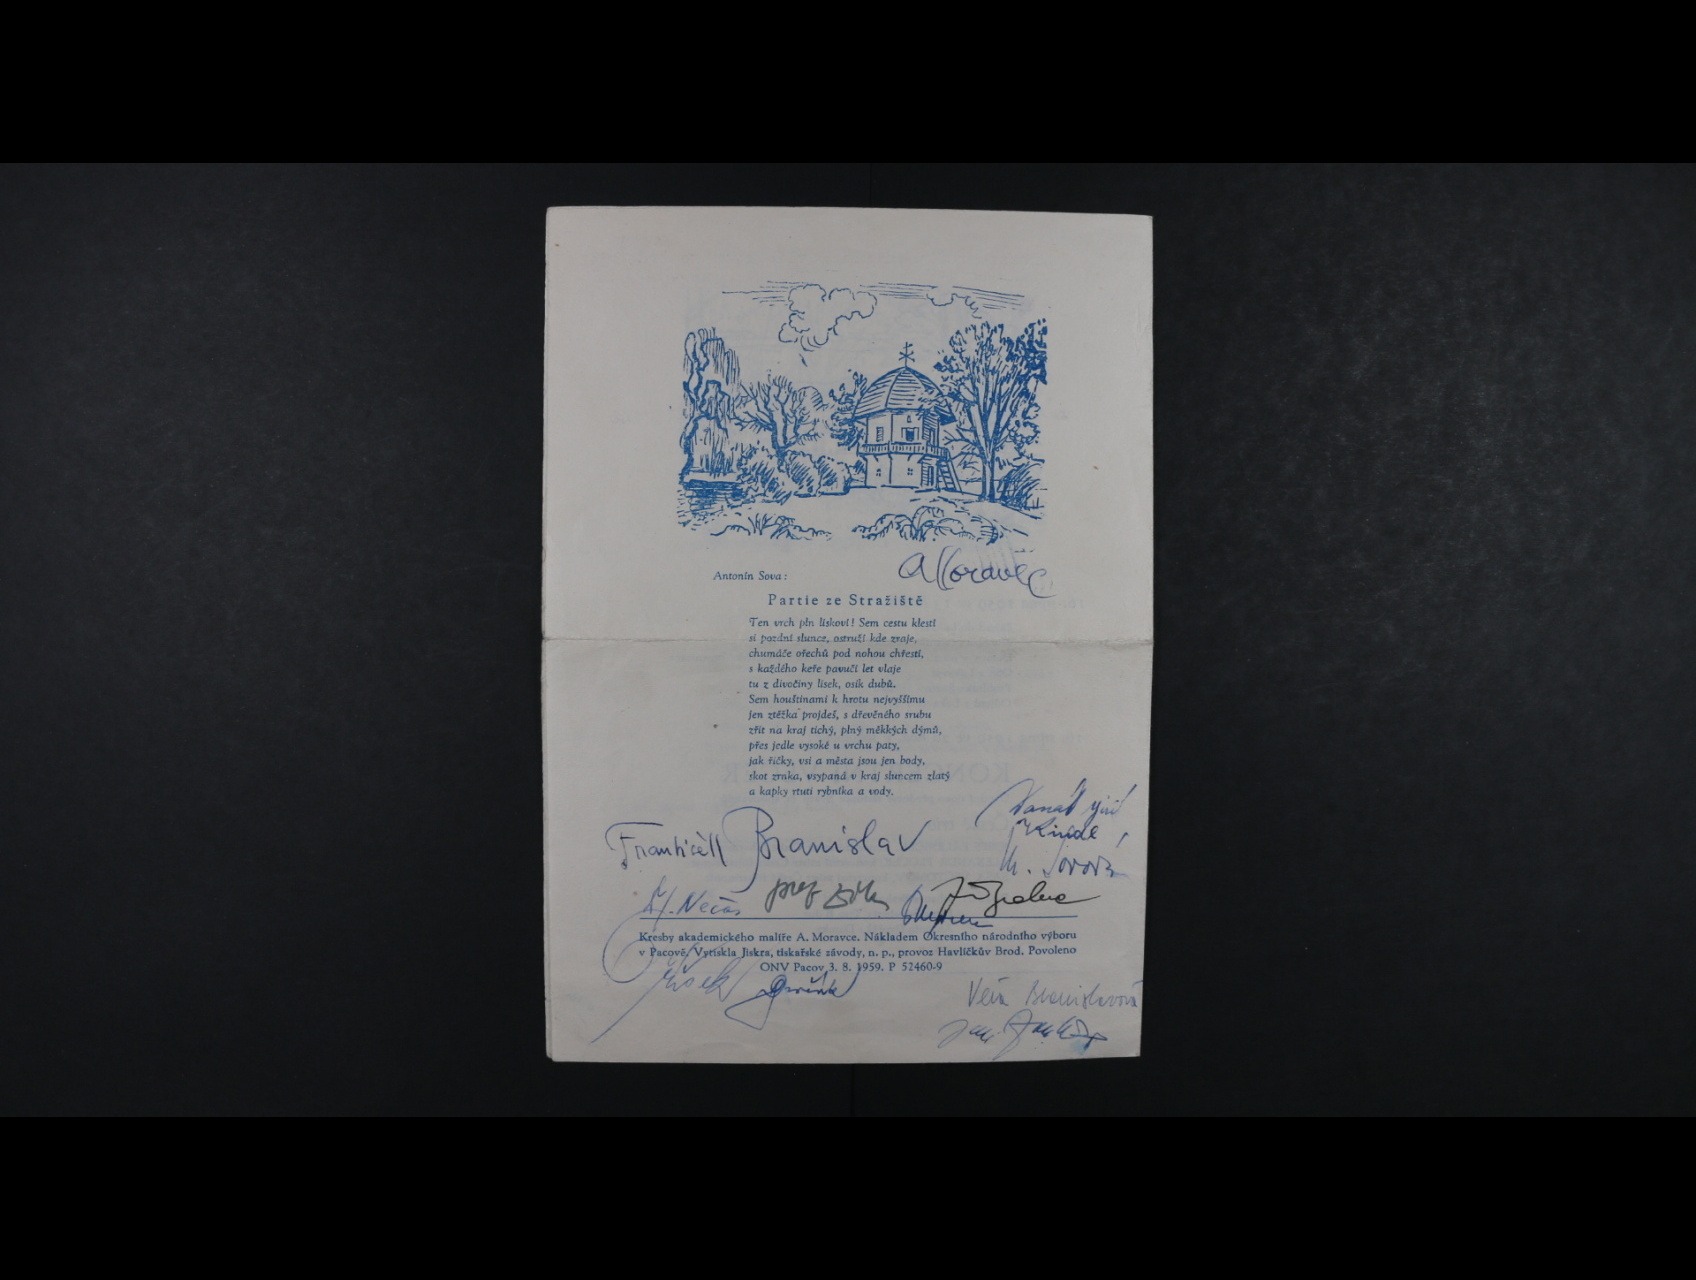 A Moravec
Antonín Sova:
Partie ze Stražiště
Ten vrch pln lískoví! Sem cestu klestí
si pozdní slunce, ostruží kde zraje,
chumáče ořechů pod nohou chřestí,
s každého keře pavučí let vlaje
tu z divočiny lísek, osik dubů.
Sem houštinami k hrotu nejvyššímu
jen ztěžka projdeš, s dřevěného srubu
zřít na kraj tichý, plný měkkých dýmů,
přes jedle vysoké u vrchu paty,
jak říčky, vsi a města jsou jen body,
skot zrnka, vsypaná v kraj sluncem zlatý
a kapky rtuti rybníka a vody.
František Branislav
Nečas
Kresby akademického malíře A. Moravce. Nákladem Okresního národního výboru
v Pacově. Vytiskla Jiskra, tiskařské závody, n. p., provoz Havlíčkův Brod. Povoleno
ONV Pacov 3. 8. 1959. P 52460-9
Věra Branislavová